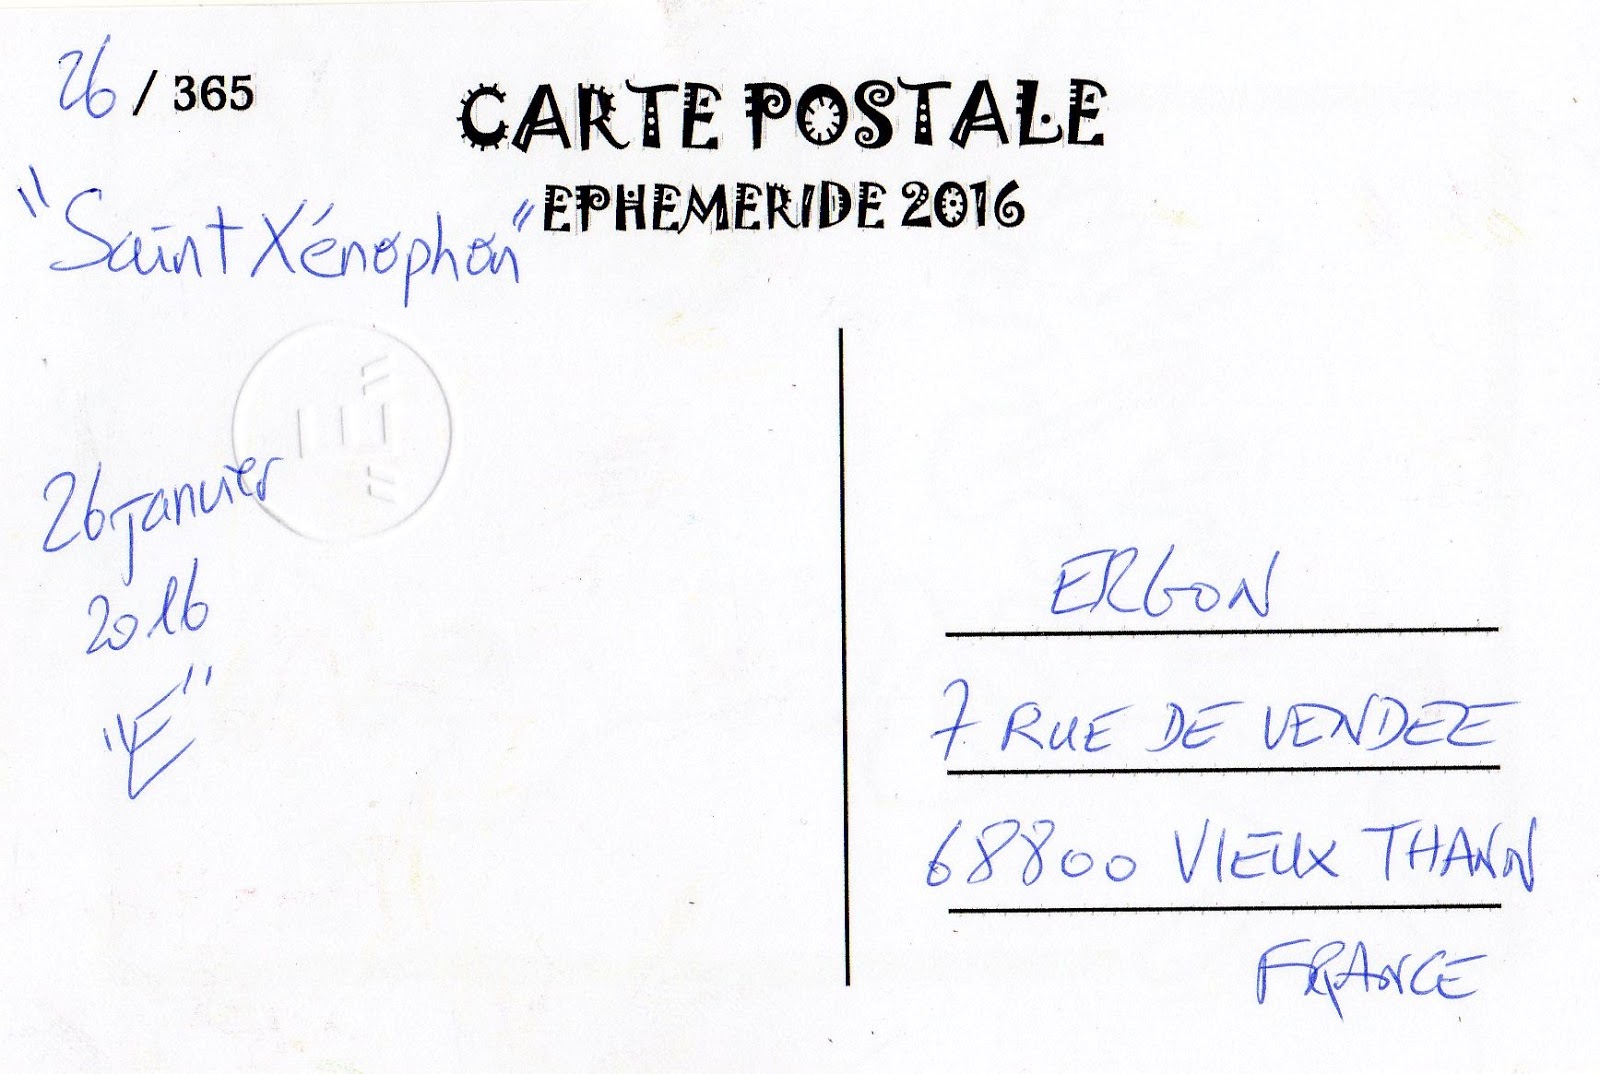 26 / 365
CARTE POSTALE
EPHEMERIDE 2016
"Saint Xénophon"
26 janvier
2016
"E"
ERGON
7 RUE DE VENDEE
68800 VIEUX THANN
FRANCE